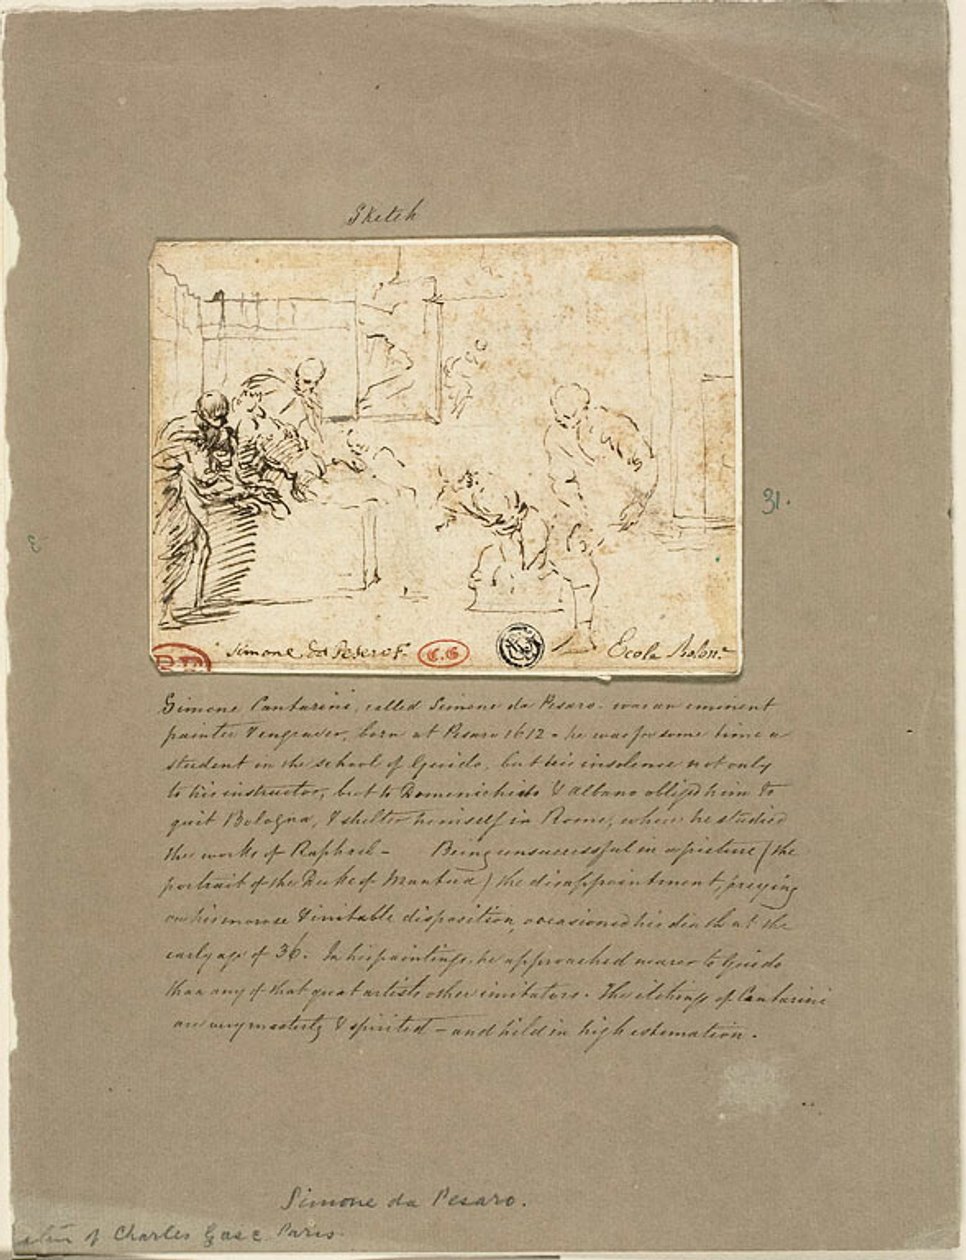 Sketch
31.
Simone da Pesero F.
C.G
Ecola Bolon.a
Simone Cantarini, called Simone da Pesaro - was an eminent
painter & engraver, born at Pesaro 1612 - he was for some time a
student in the school of Guido, but his insolence not only
to his instructor, but to Domenichino & Albano obliged him to
quit Bologna, & shelter himself in Rome, where he studied
the works of Raphael - Being unsuccessful in a picture (the
portrait of the Duke of Mantua) the disappointment, preying
on his morose & irritable disposition, occasioned his death at the
early age of 36. In his paintings, he approached nearer to Guido
than any of that great artists other imitators. The etchings of Cantarini
are very masterly & spirited - and held in high estimation.
Simone da Pesaro.
of Charles Gasc Paris.